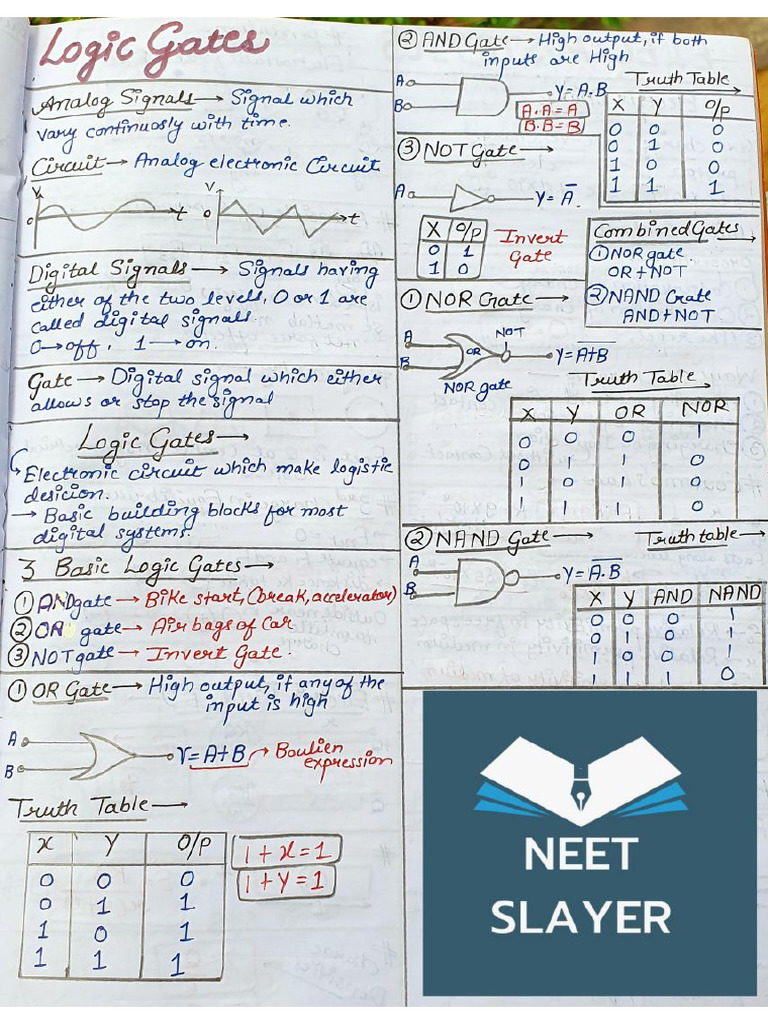 Logic Gates
Analog Signals → Signal which
vary continuosly with time.
Circuit → Analog electronic Circuit
V
0
t
V
0
t
Digital Signals → Signals having
either of the two levels, 0 or 1 are
called digital signals.
0 → off, 1 → on.
Gate → Digital signal which either
allows or stop the signal
Logic Gates →
Electronic circuit which make logistic
desicion.
→ Basic building blocks for most
digital systems.
3 Basic Logic Gates →
① AND gate → Bike start, (break, accelerator)
② OR gate → Air bags of Car
③ NOT gate → Invert Gate.
① OR Gate → High output, if any of the
input is high
A
B
Y = A+B → Boulien
expression
Truth Table →
X Y O/P
0 0 0
0 1 1
1 0 1
1 1 1
1 + x = 1
1 + y = 1
② AND Gate → High output, if both
inputs are High
A
B
Y = A.B
A.A = A
B.B = B
Truth Table
X Y O/P
0 0 0
0 1 0
1 0 0
1 1 1
③ NOT Gate →
A
Y = A̅.
X O/P
0 1
1 0
Invert
Gate
Combined Gates
① NOR gate.
OR + NOT
② NAND Gate
AND + NOT
① NOR Gate →
A
B
OR
NOT
Y = A̅+̅B̅
NOR gate
Truth Table
X Y OR NOR
0 0 0 1
0 1 1 0
1 0 1 0
1 1 1 0
② NAND Gate →
Truth table →
A
B
Y = A̅.̅B̅
X Y AND NAND
0 0 0 1
0 1 0 1
1 0 0 1
1 1 1 0
NEET
SLAYER